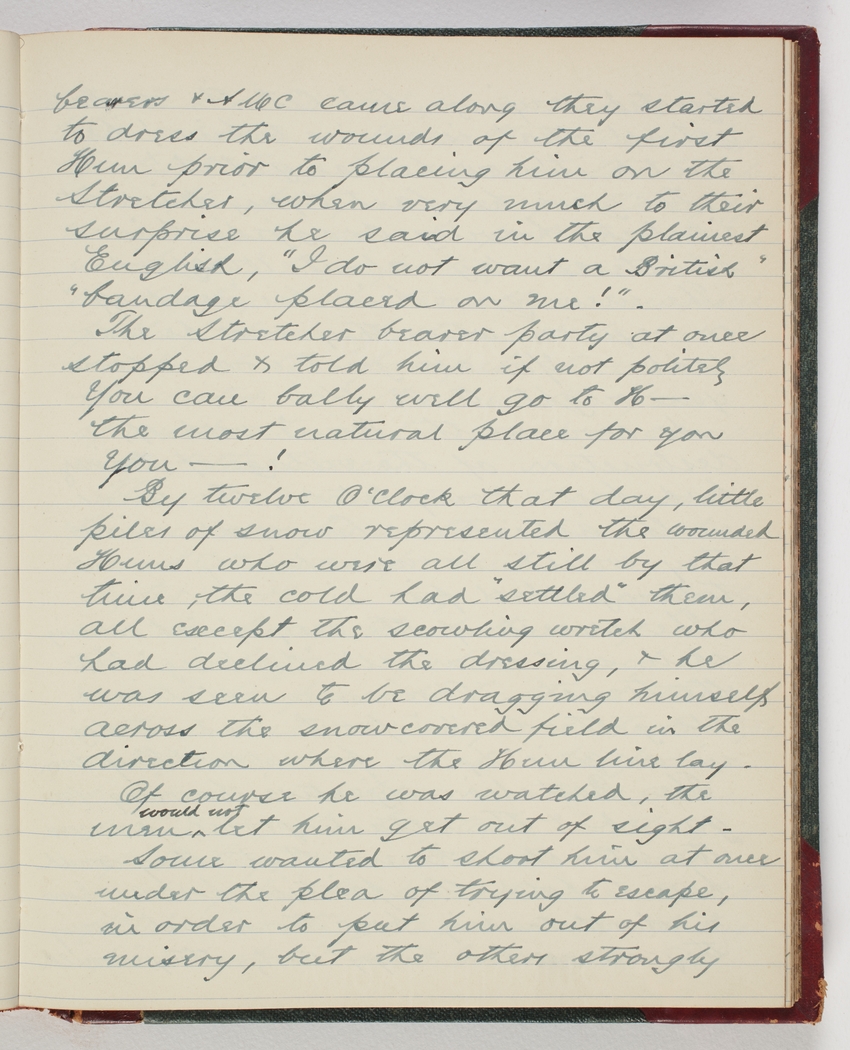 bearers & AMC came along they started
to dress the wounds of the first
Hun prior to placing him on the
Stretcher, when very much to their
surprise he said in the plainest
English, "I do not want a British"
"bandage placed on me!".
The Stretcher bearer party at once
stopped & told him if not politely
You can bally well go to H—
the most natural place for you
You — !
By twelve O'Clock that day, little
piles of snow represented the wounded
Huns who were all still by that
time, the cold had "settled" them,
all except the scowling wretch who
had declined the dressing, & he
was seen to be dragging himself
across the snowcovered field in the
direction where the Hun line lay.
Of course he was watched, the
would not
men ^ let him get out of sight -
Some wanted to shoot him at once
under the plea of trying to escape,
in order to put him out of his
misery, but the others strongly